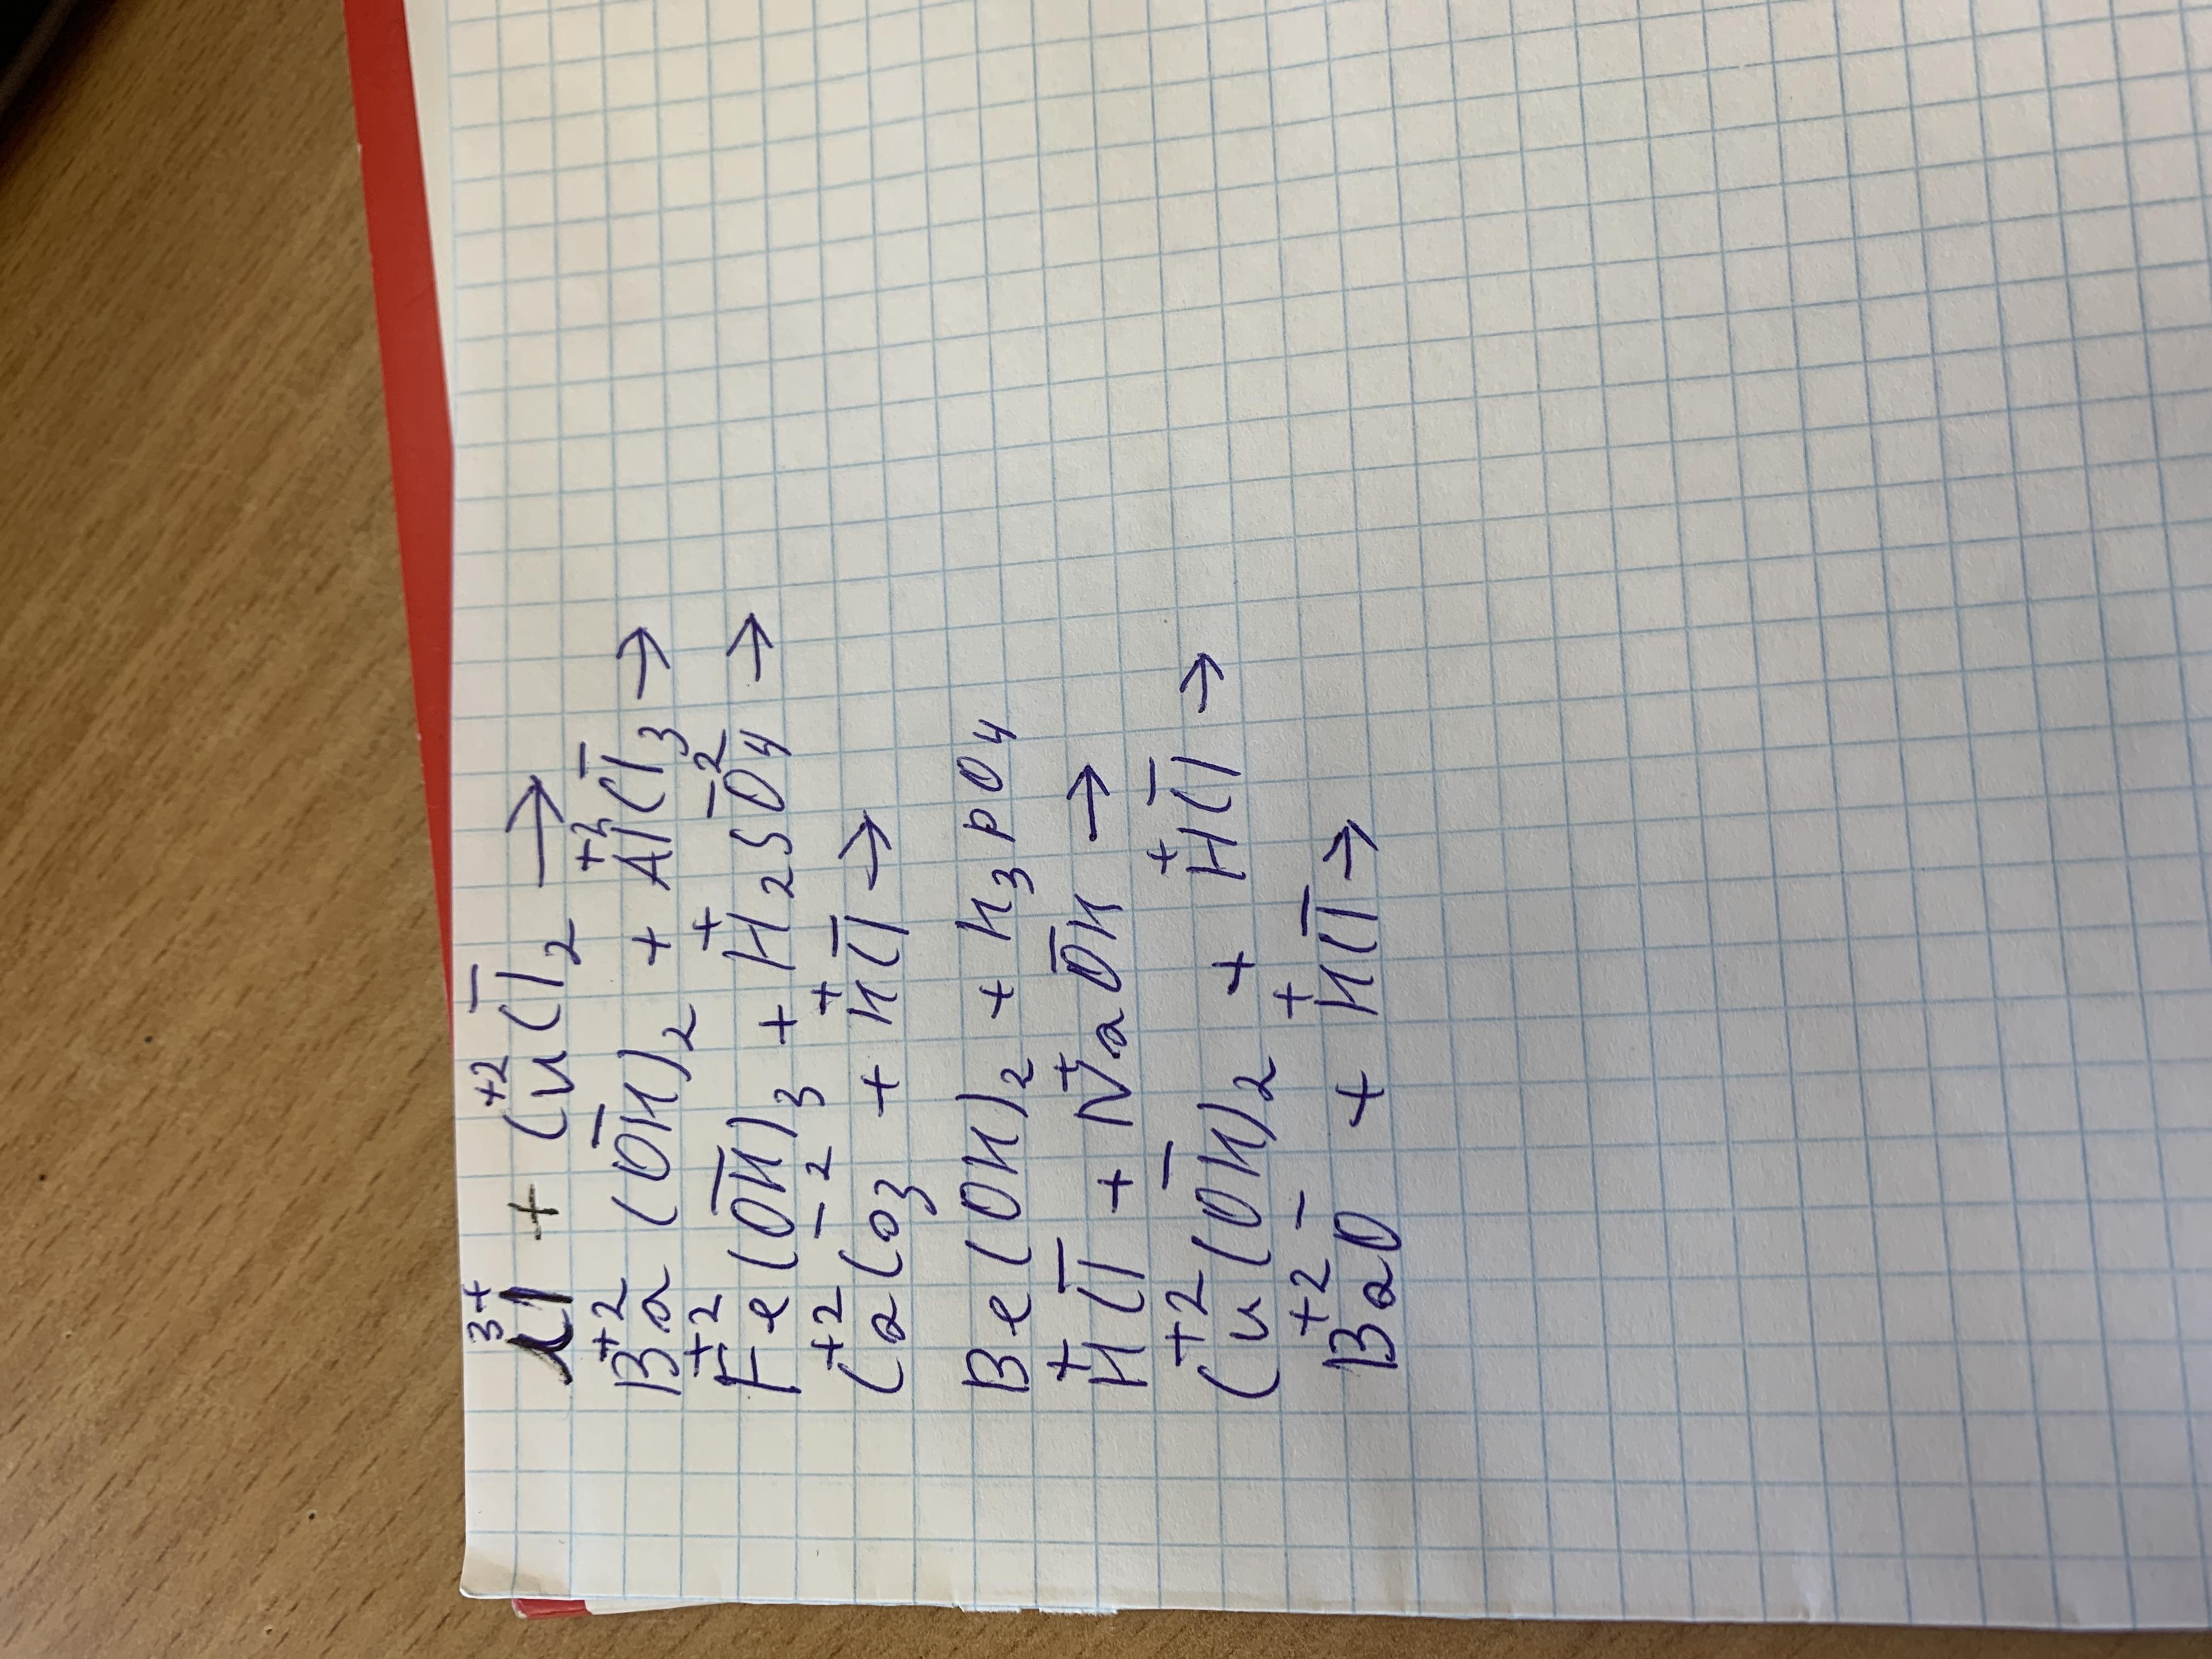 3+ +2 –
Al + CuCl2 →
+2 – +3 –
Ba(OH)2 + AlCl3 →
+2 – + –2
Fe(OH)3 + H2SO4 →
+2 –2 + –
CaCO3 + HCl →
Be(OH)2 + H3PO4
+ – + –
HCl + NaOH →
+2 – + –
Cu(OH)2 + HCl →
+2 – + –
BaO + HCl →